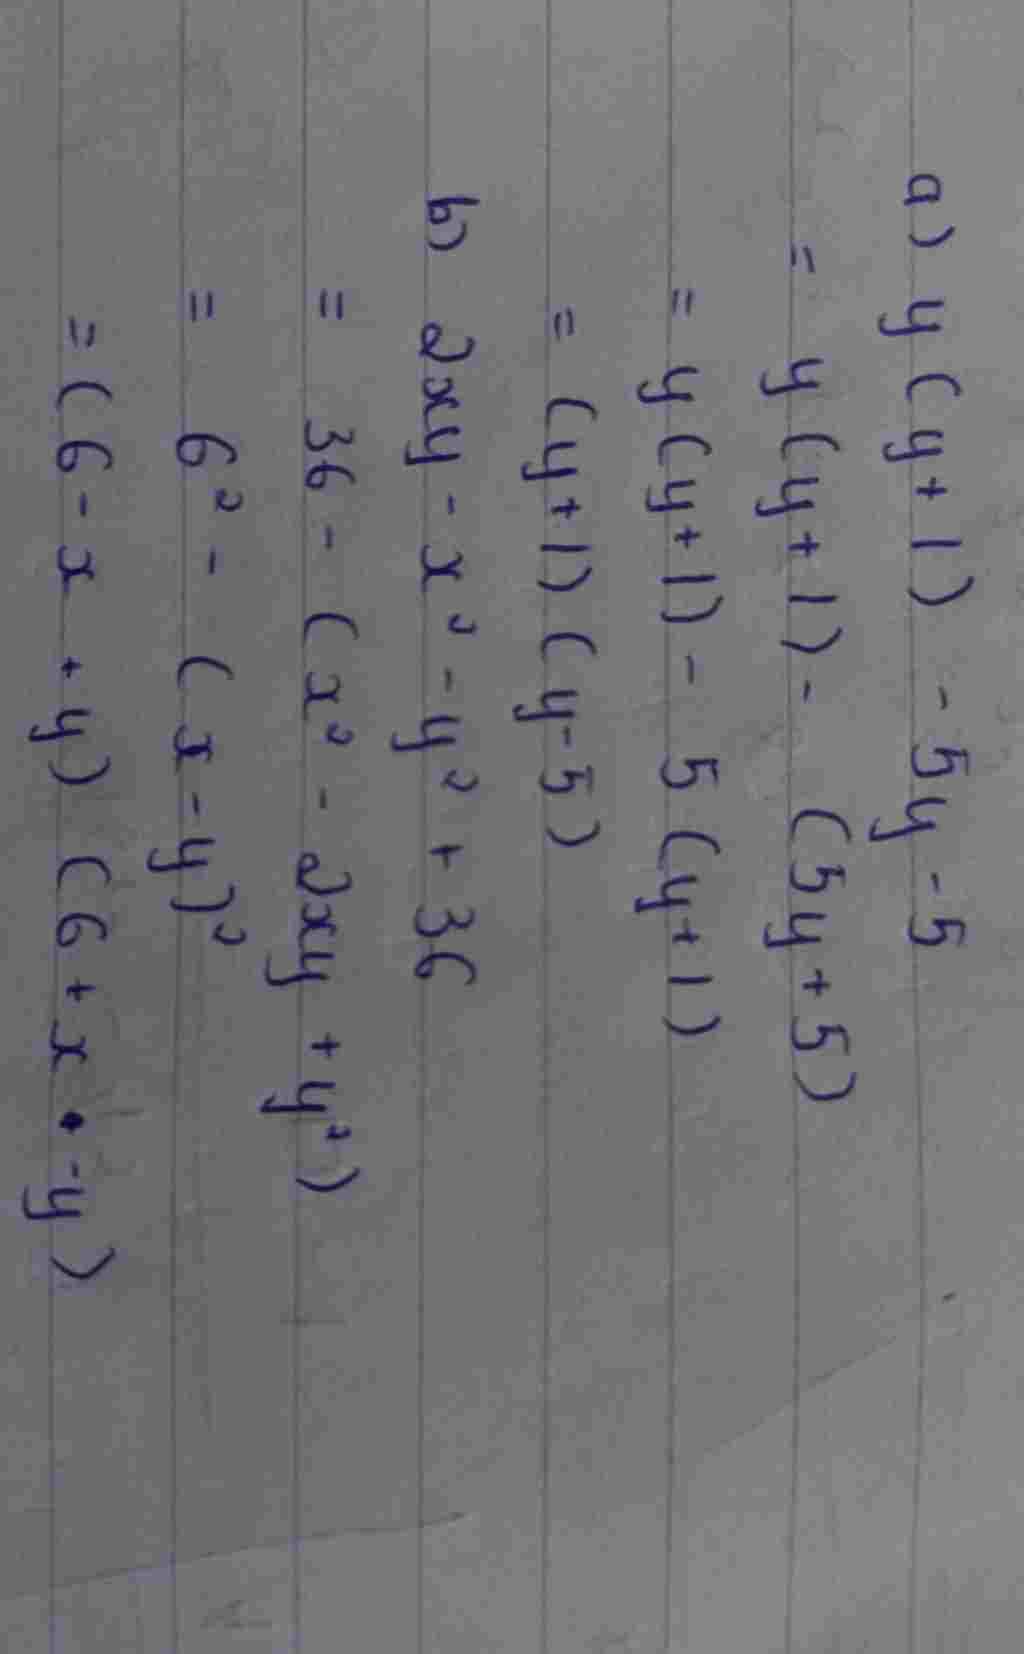 a) y (y + 1) - 5y - 5
= y (y + 1) - (5y + 5)
= y (y + 1) - 5 (y + 1)
= (y + 1) (y - 5)
b) 2xy - x² - y² + 36
= 36 - (x² - 2xy + y²)
= 6² - (x - y)²
= (6 - x + y) (6 + x - y)